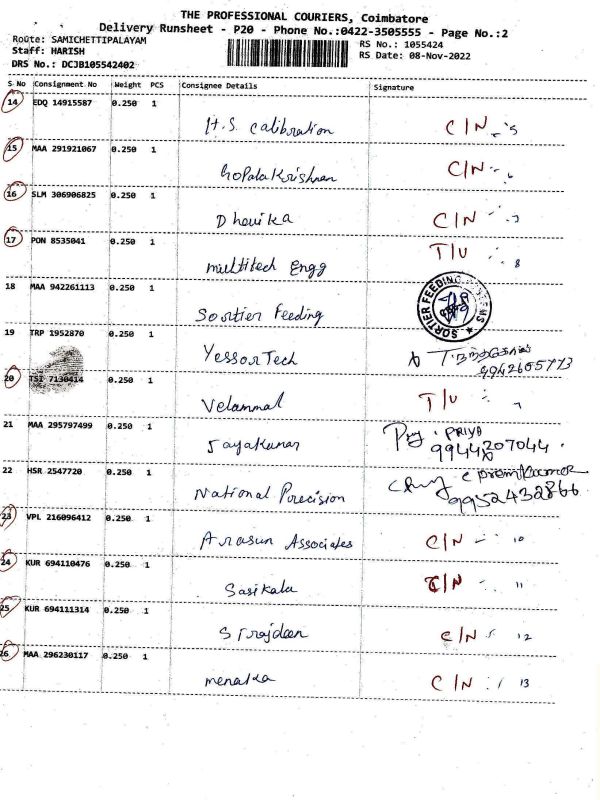 THE PROFESSIONAL COURIERS, Coimbatore
Delivery Runsheet - P20 - Phone No.:0422-3505555 - Page No.:2
Route: SAMICHETTIPALAYAM
RS No.: 1055424
Staff: HARISH
RS Date: 08-Nov-2022
DRS No.: DCJB105542402
S No Consignment No Weight PCS Consignee Details Signature
14 EDQ 14915587 0.250 1
H.S. Calibration C/N 5
15 MAA 291921067 0.250 1
GoPalaKrishnan C/N 6
16 SLM 306906825 0.250 1
Dhevika C/N 7
17 PON 8535041 0.250 1 T/U
multitech Engg 8
18 MAA 942261113 0.250 1
Sortier Feeding SORTIER FEEDING SYSTEMS
19 TRP 1952870 0.250 1
YessorTech
20 TSI 7130414 0.250 1
Velammal T/U
21 MAA 295797499 0.250 1 PRIYA
Jayakumar
22 HSR 2547720 0.250 1
National Precision 9952432866
23 VPL 216096412 0.250 1
Arasun Associates C/N 10
24 KUR 694110476 0.250 1
Sasikala C/N 11
25 KUR 694111314 0.250 1
Sirajdeen C/N 12
26 MAA 296230117 0.250 1
menaka C/N 13